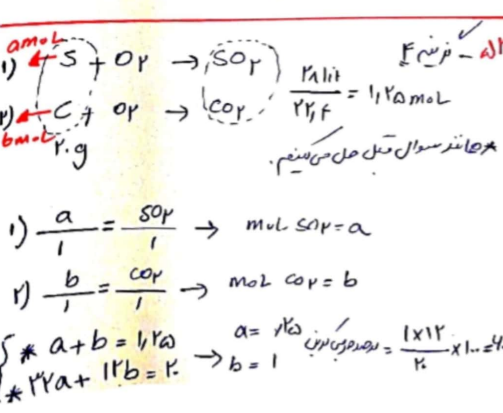 ۵۱ - گزینه ۴
amol
۱) S + O۲ → SO۲
۲) C + O۲ → CO۲
bmol
۲۰g
۲۸ lit / ۲۲,۴ = ۱,۲۵ mol
* مانند سوال قبل حل می‌کنیم.
۱) a/۱ = SO۲/۱ → mol SO۲ = a
۲) b/۱ = CO۲/۱ → mol CO۲ = b
{ * a + b = ۱,۲۵
* ۳۲a + ۱۲b = ۲۰ → a = ,۲۵
b = ۱
درصد جرمی کربن = ۱×۱۲/۲۰ × ۱۰۰ = ۶۰